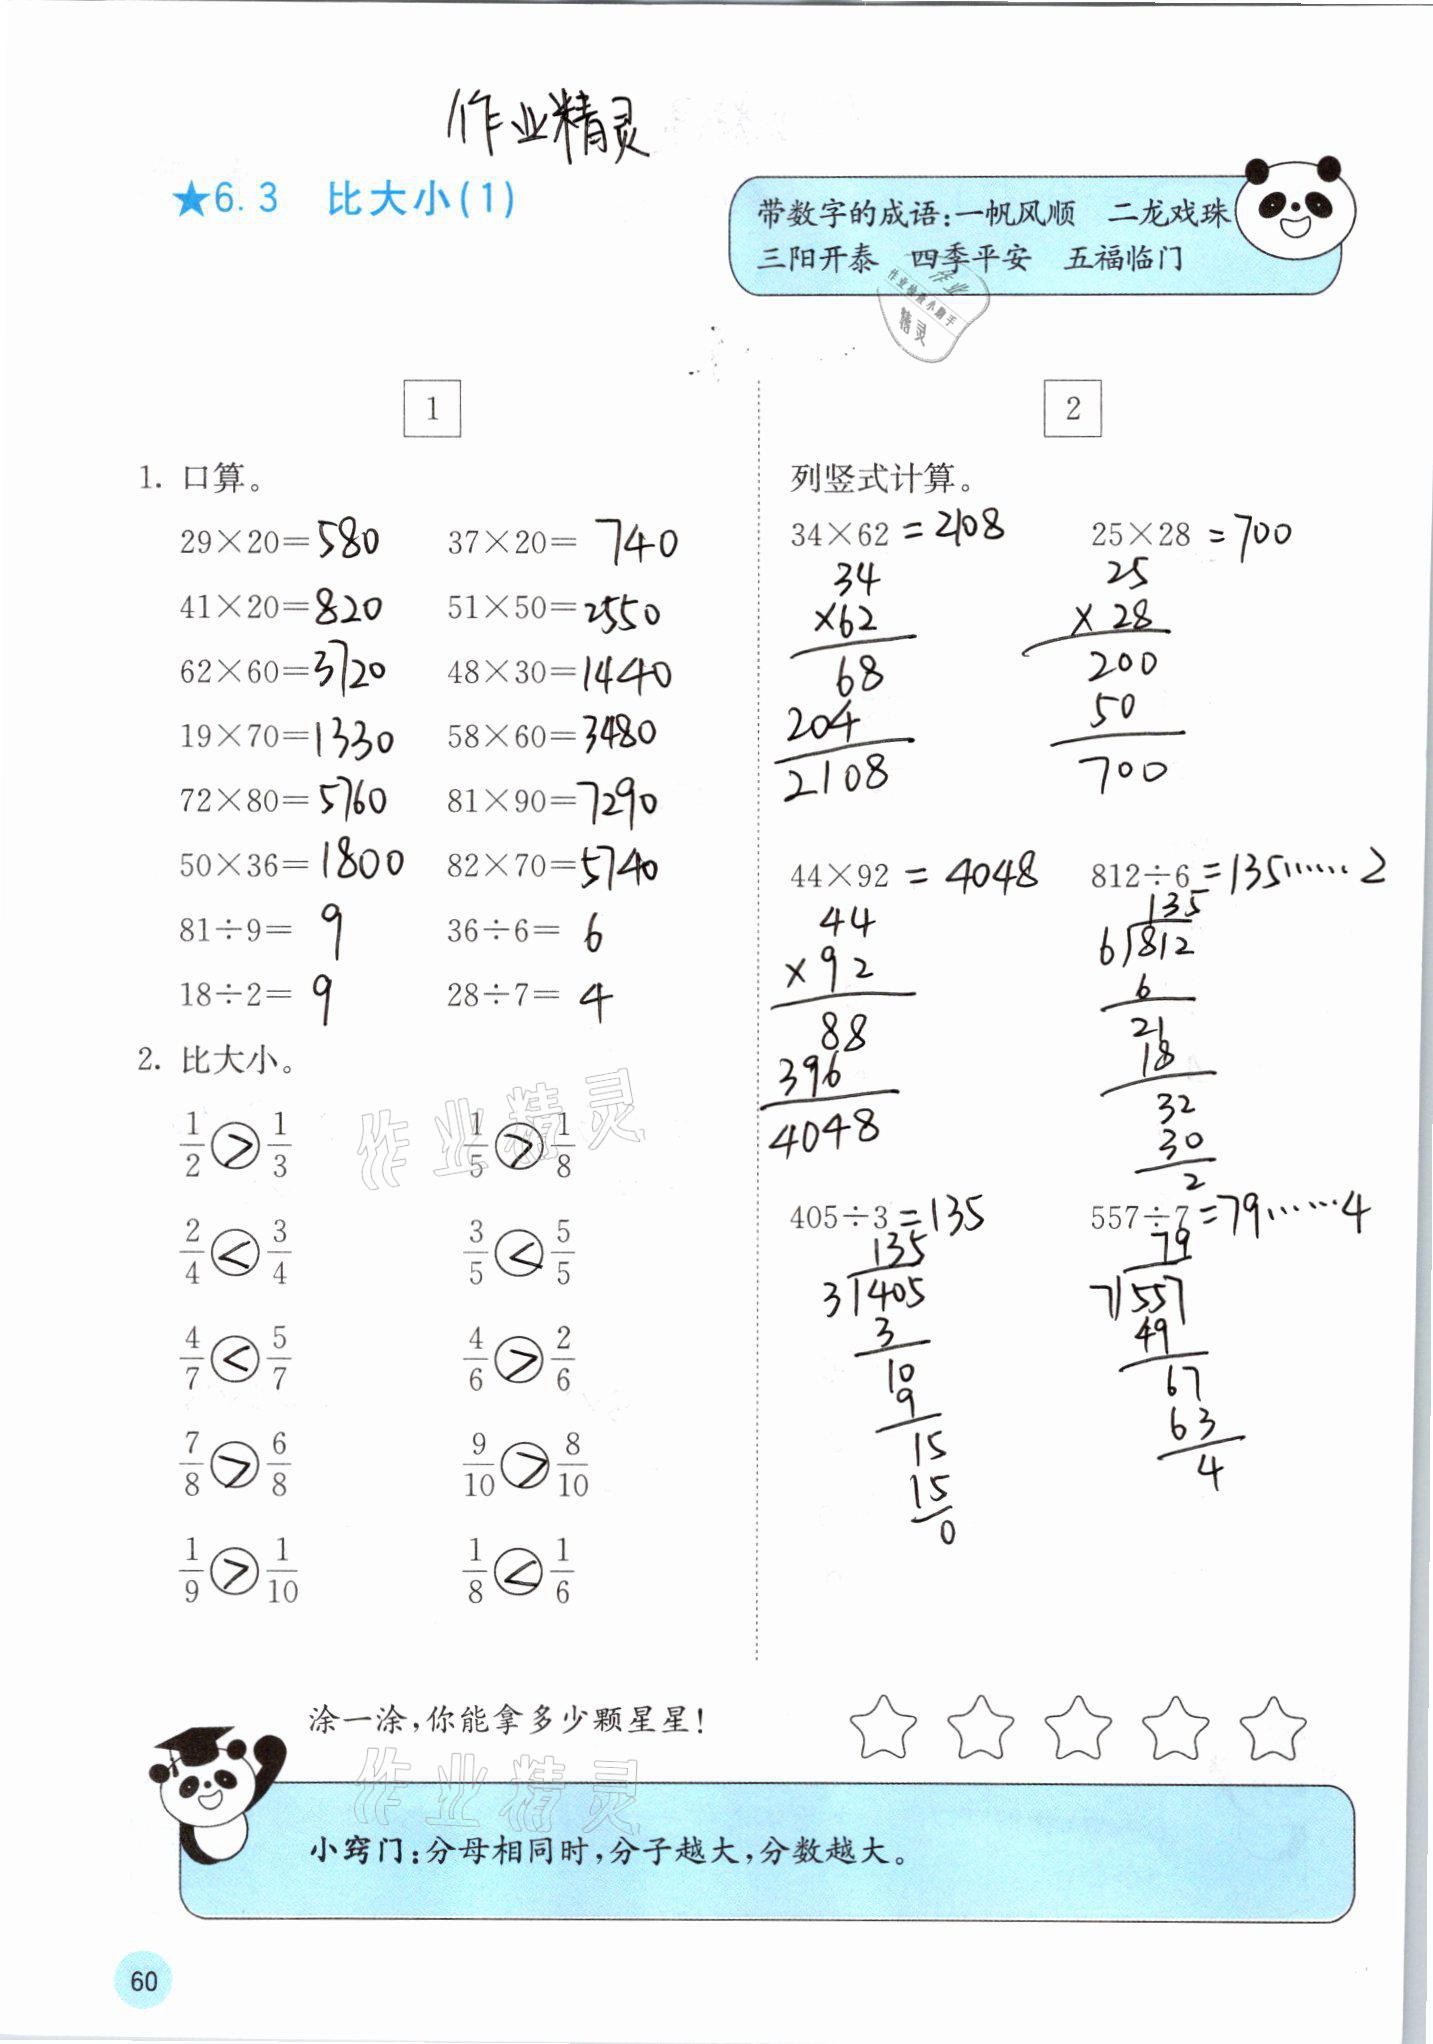 作业精灵
★6.3 比大小(1)
带数字的成语:一帆风顺 二龙戏珠
三阳开泰 四季平安 五福临门
作业
作业检查小助手
精灵
1
1. 口算。
29×20=580 37×20=740
41×20=820 51×50=2550
62×60=3720 48×30=1440
19×70=1330 58×60=3480
72×80=5760 81×90=7290
50×36=1800 82×70=5740
81÷9=9 36÷6=6
18÷2=9 28÷7=4
2. 比大小。
1/2 > 1/3 1/5 > 1/8
2/4 < 3/4 3/5 < 5/5
4/7 < 5/7 4/6 > 2/6
7/8 > 6/8 9/10 > 8/10
1/9 > 1/10 1/8 < 1/6
作业精灵
2
列竖式计算。
34×62=2108 25×28=700
34 25
×62 ×28
68 200
204 50
2108 700
44×92=4048 812÷6=135……2
44 135
×92 6 812
88 6
396 21
4048 18
32
30
2
405÷3=135 557÷7=79……4
135 79
3 405 7 557
3 49
10 67
9 63
15 4
15
0
涂一涂,你能拿多少颗星星!
作业精灵
小窍门:分母相同时,分子越大,分数越大。
60